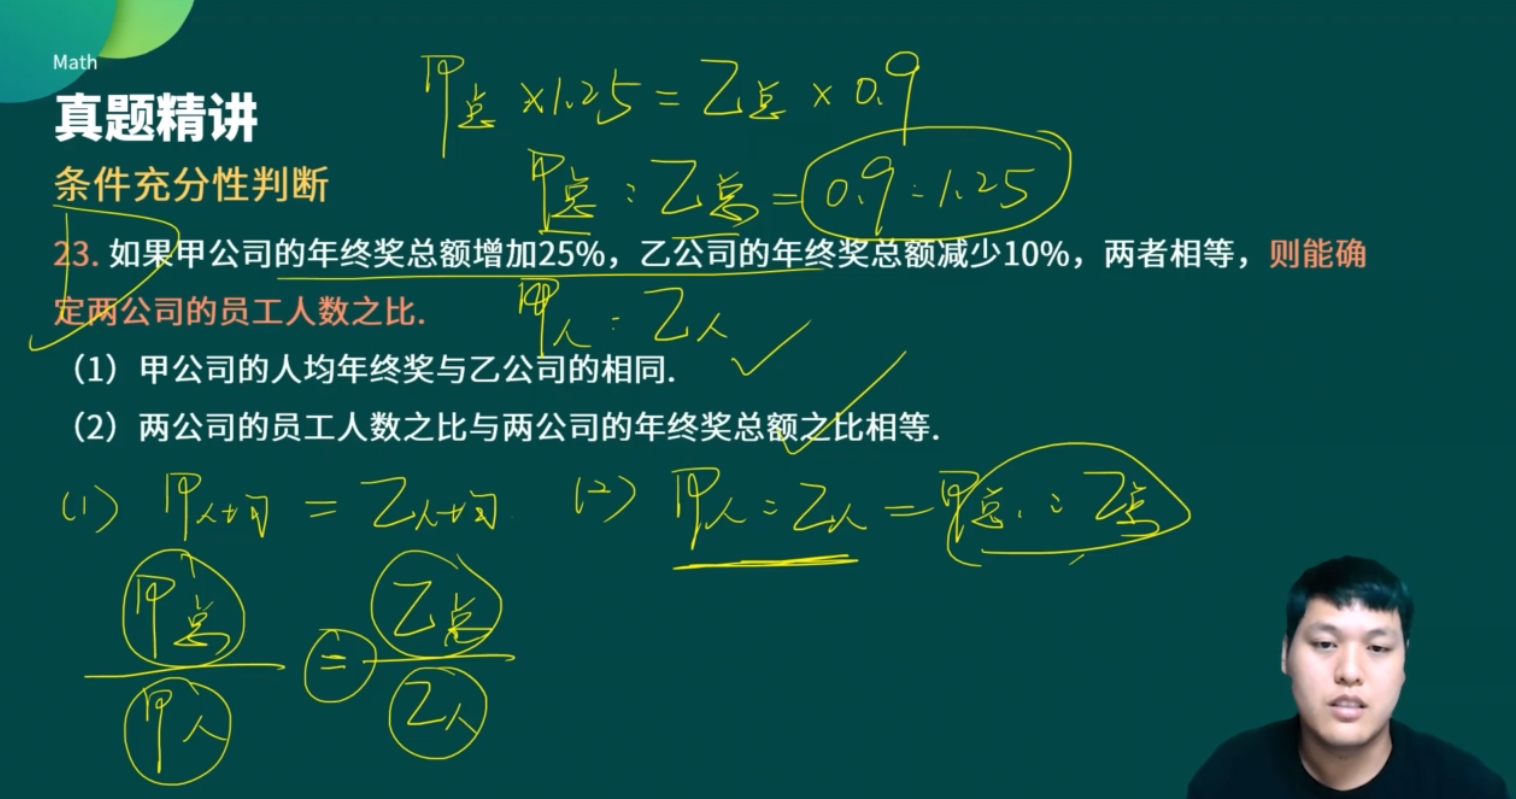 Math
甲总 ×1.25 = 乙总 × 0.9
真题精讲
甲总 : 乙总 = 0.9 : 1.25
条件充分性判断
D
23. 如果甲公司的年终奖总额增加25%，乙公司的年终奖总额减少10%，两者相等，则能确
定两公司的员工人数之比.
甲人 : 乙人
（1）甲公司的人均年终奖与乙公司的相同.
（2）两公司的员工人数之比与两公司的年终奖总额之比相等.
(1) 甲人均 = 乙人均
(2) 甲人 : 乙人 = 甲总 : 乙总
甲总 = 乙总
甲人 乙人